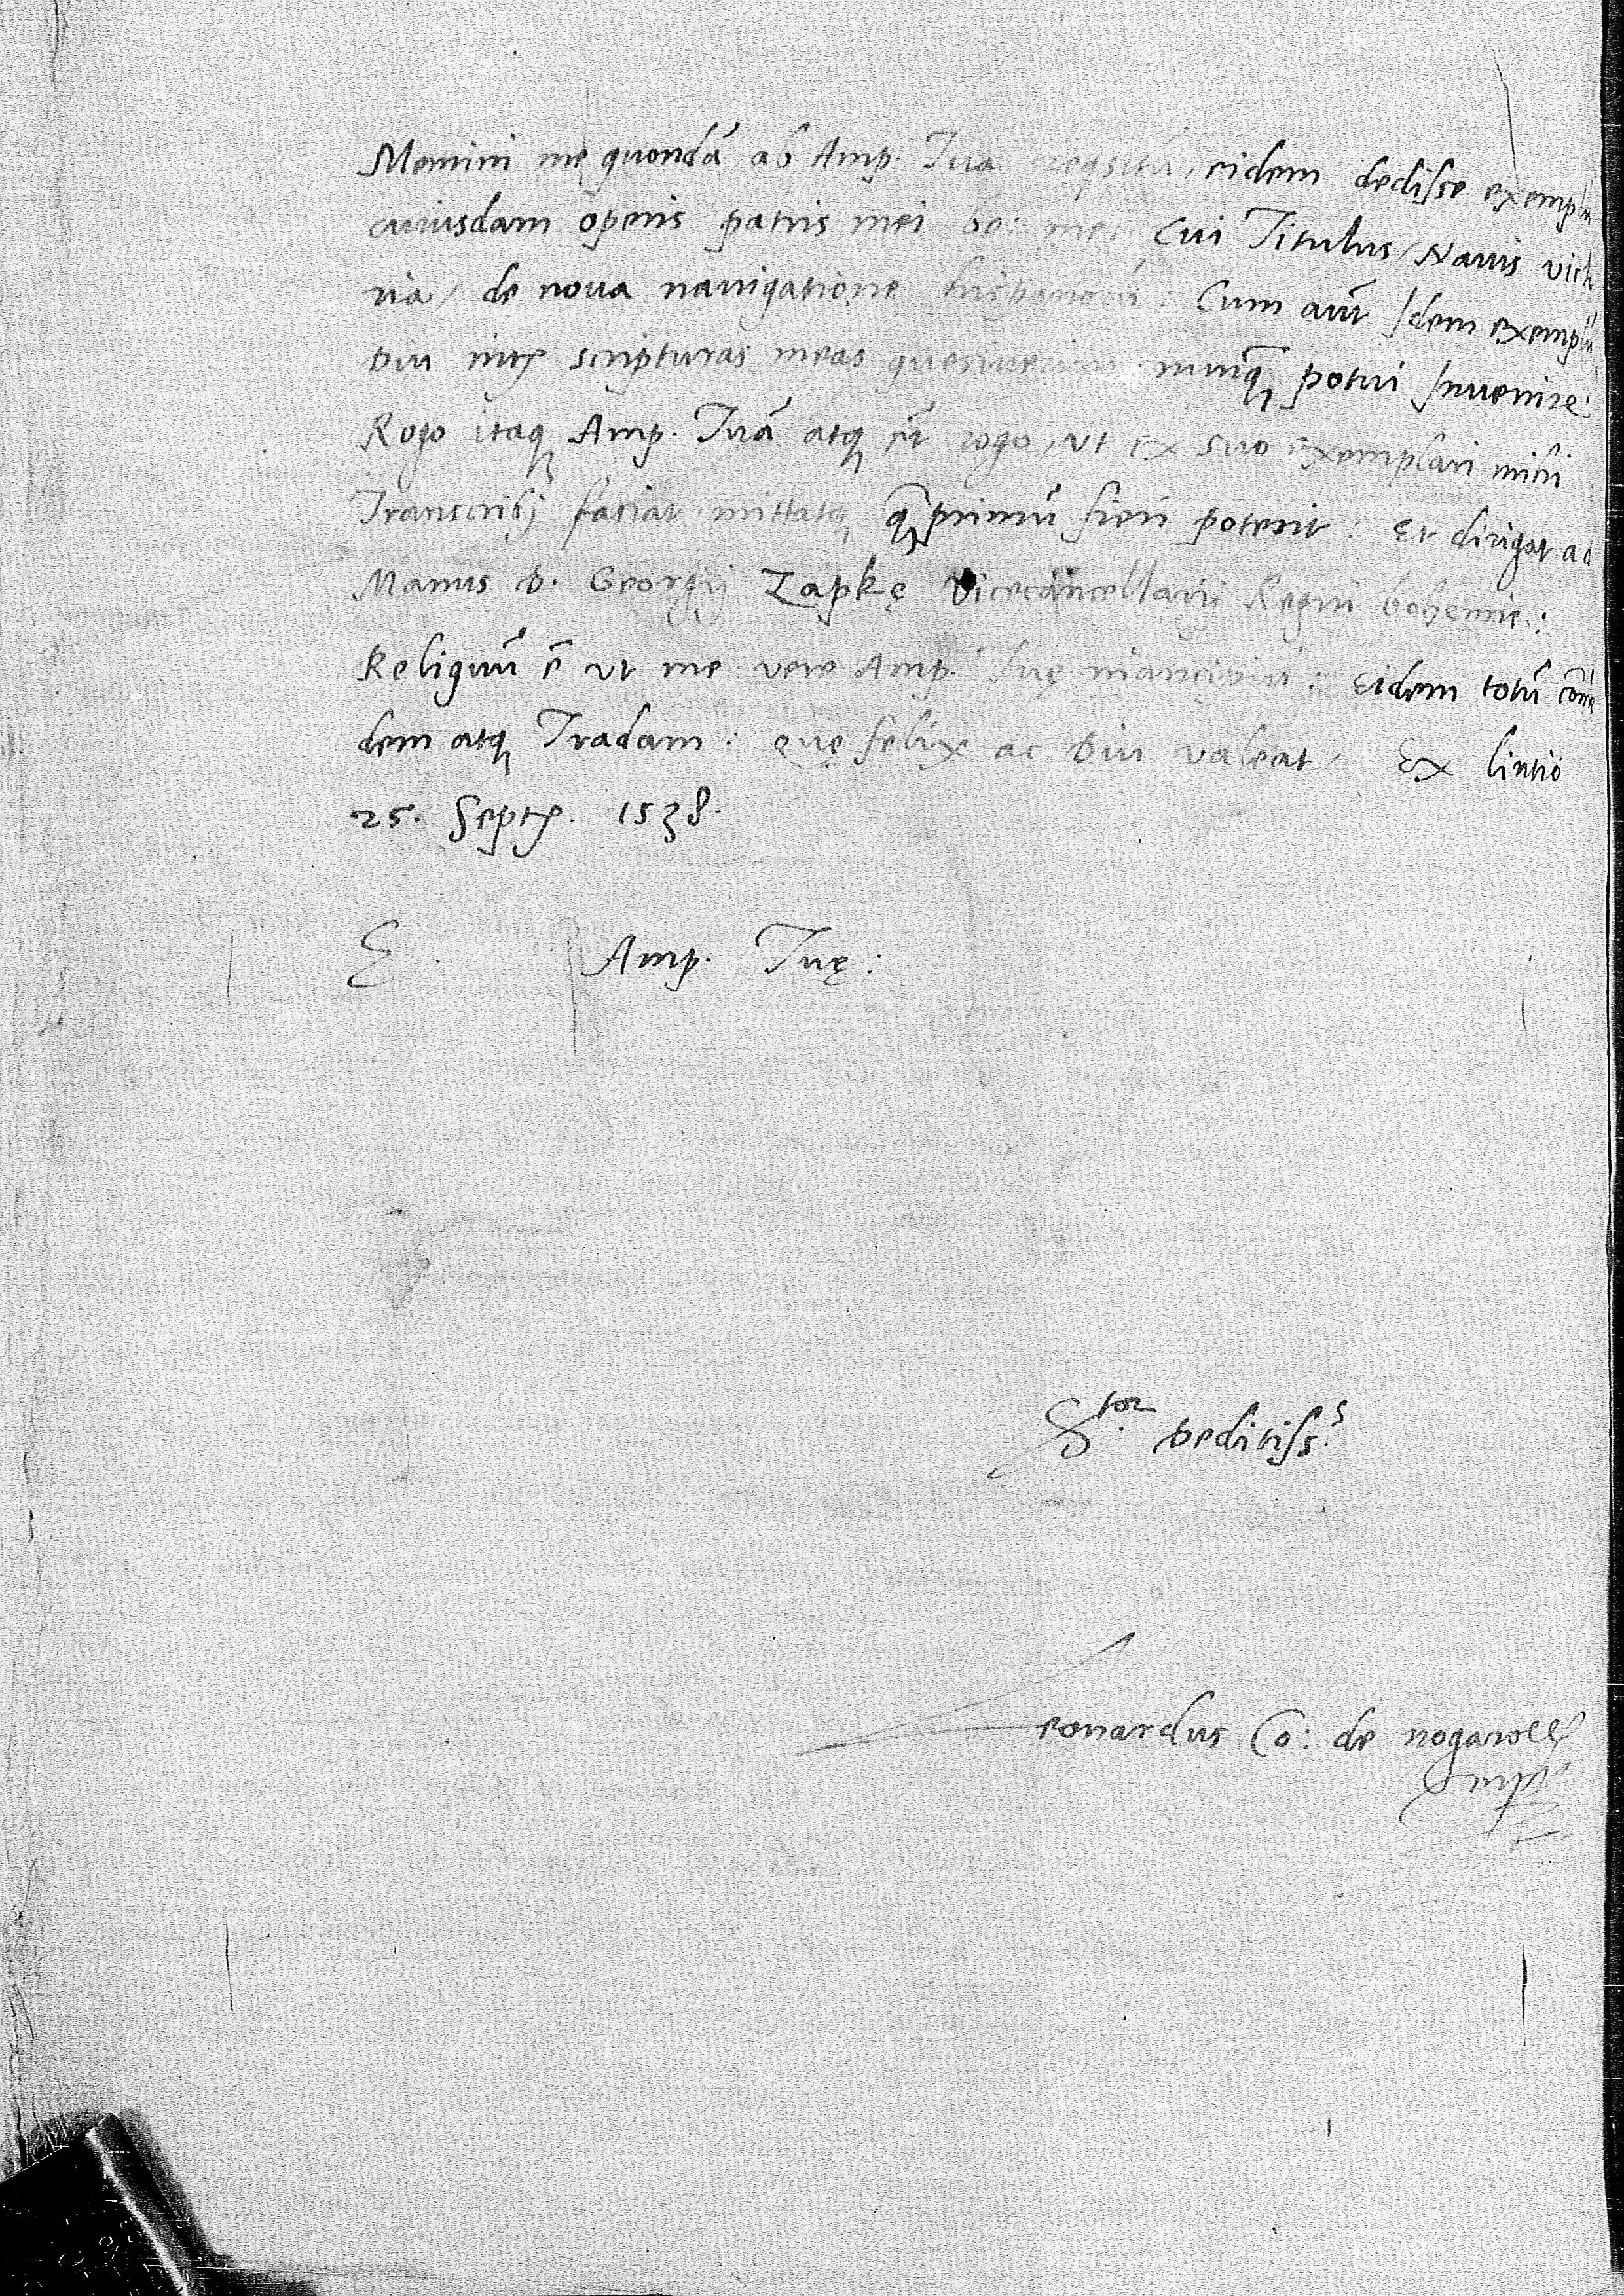 Memini me quondā ab Amp. Tua reqsitū, eidem dedisse exemplū
cuiusdam operis patris mei bo: me: Cui Titulus / Nauis victo
ria / de noua nauigatione hispanorū: Cum aūt Idem exemplū
Diu int͛ scripturas meas quesiuerim nunq̄ potui Inuenire:
Rogo itaq Amp. Tuā atq et̄ rogo, ut ex suo exemplari mihi
Transcribj faciat mittatq q̄primū fieri poterit: Et dirigat ad
Manus D. Georgij Zapkę Vicecancellarij Regni bohemie:
Reliquū ē ut me vere Amp. Tuę mancipiū: Eidem totū com̄e
dem atq Tradam: quę felix ac Diu valeat / Ex lintio
25. Sept͛. 1538.
E. Amp. Tuę:
S.tor deditiss.s
Leonardus Co: de nogaroll͛
mp͛